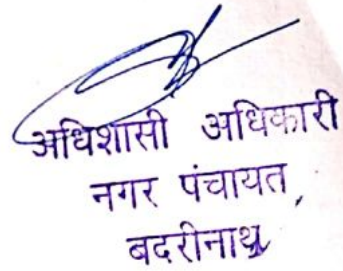 अधिशासी अधिकारी
नगर पंचायत,
बदरीनाथ